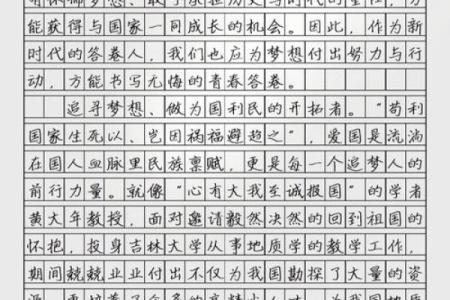 能获得与国家一同成长的机会。因此，作为新
时代的答卷人，我们也应为梦想付出努力与行
动，方能书写无悔的青春答卷。
追寻梦想、做为国利民的开拓者。“苟利
国家生死以、岂因祸福避趋之”，爱国是流淌
在国人血脉里民族禀赋，更是每一个追梦人的
前行力量。就像“心有大我至诚报国”的学者
黄大年教授，面对邀请毅然决然的回到祖国的
怀抱，投身吉林大学从事地质学的教学工作，
期间兢兢业业付出不仅为我国勘探了大量的资